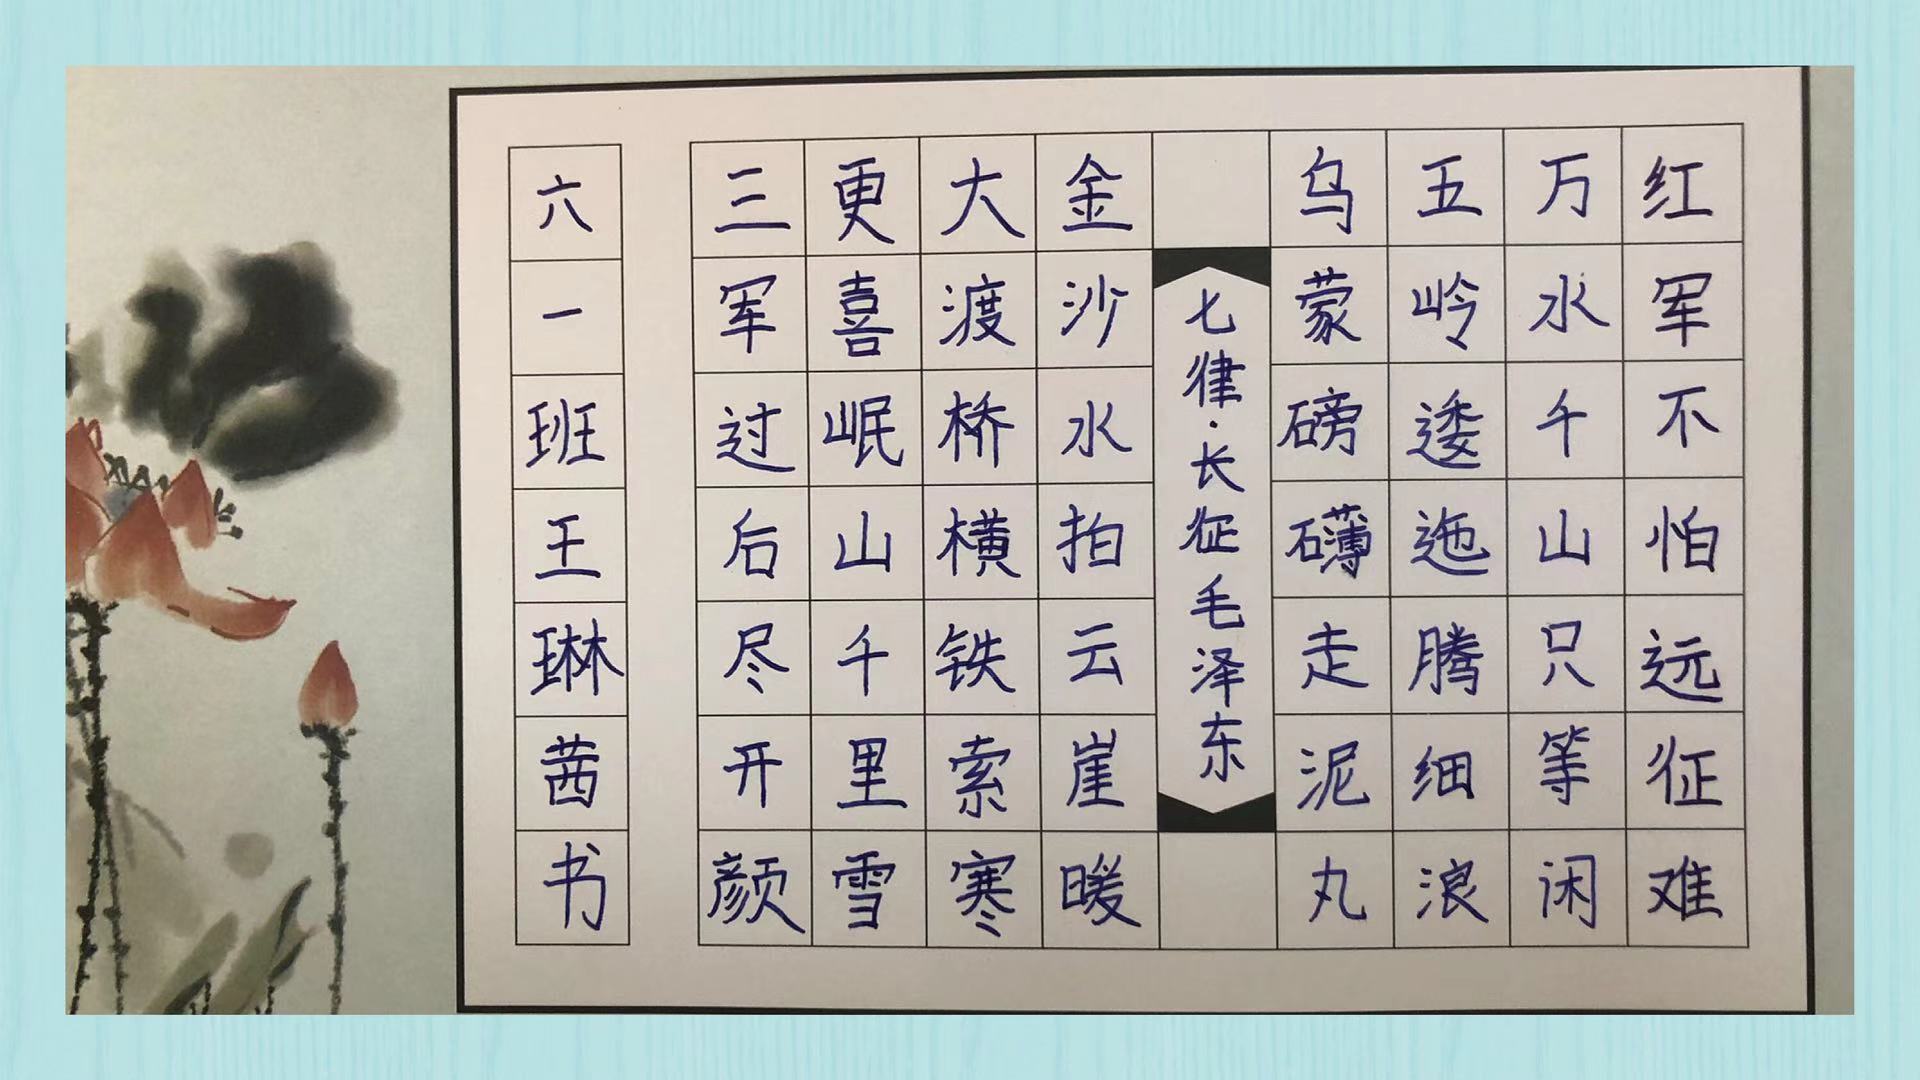 红军不怕远征难
万水千山只等闲
五岭逶迤腾细浪
乌蒙磅礴走泥丸
七律·长征毛泽东
金沙水拍云崖暖
大渡桥横铁索寒
更喜岷山千里雪
三军过后尽开颜
六一班王琳茜书